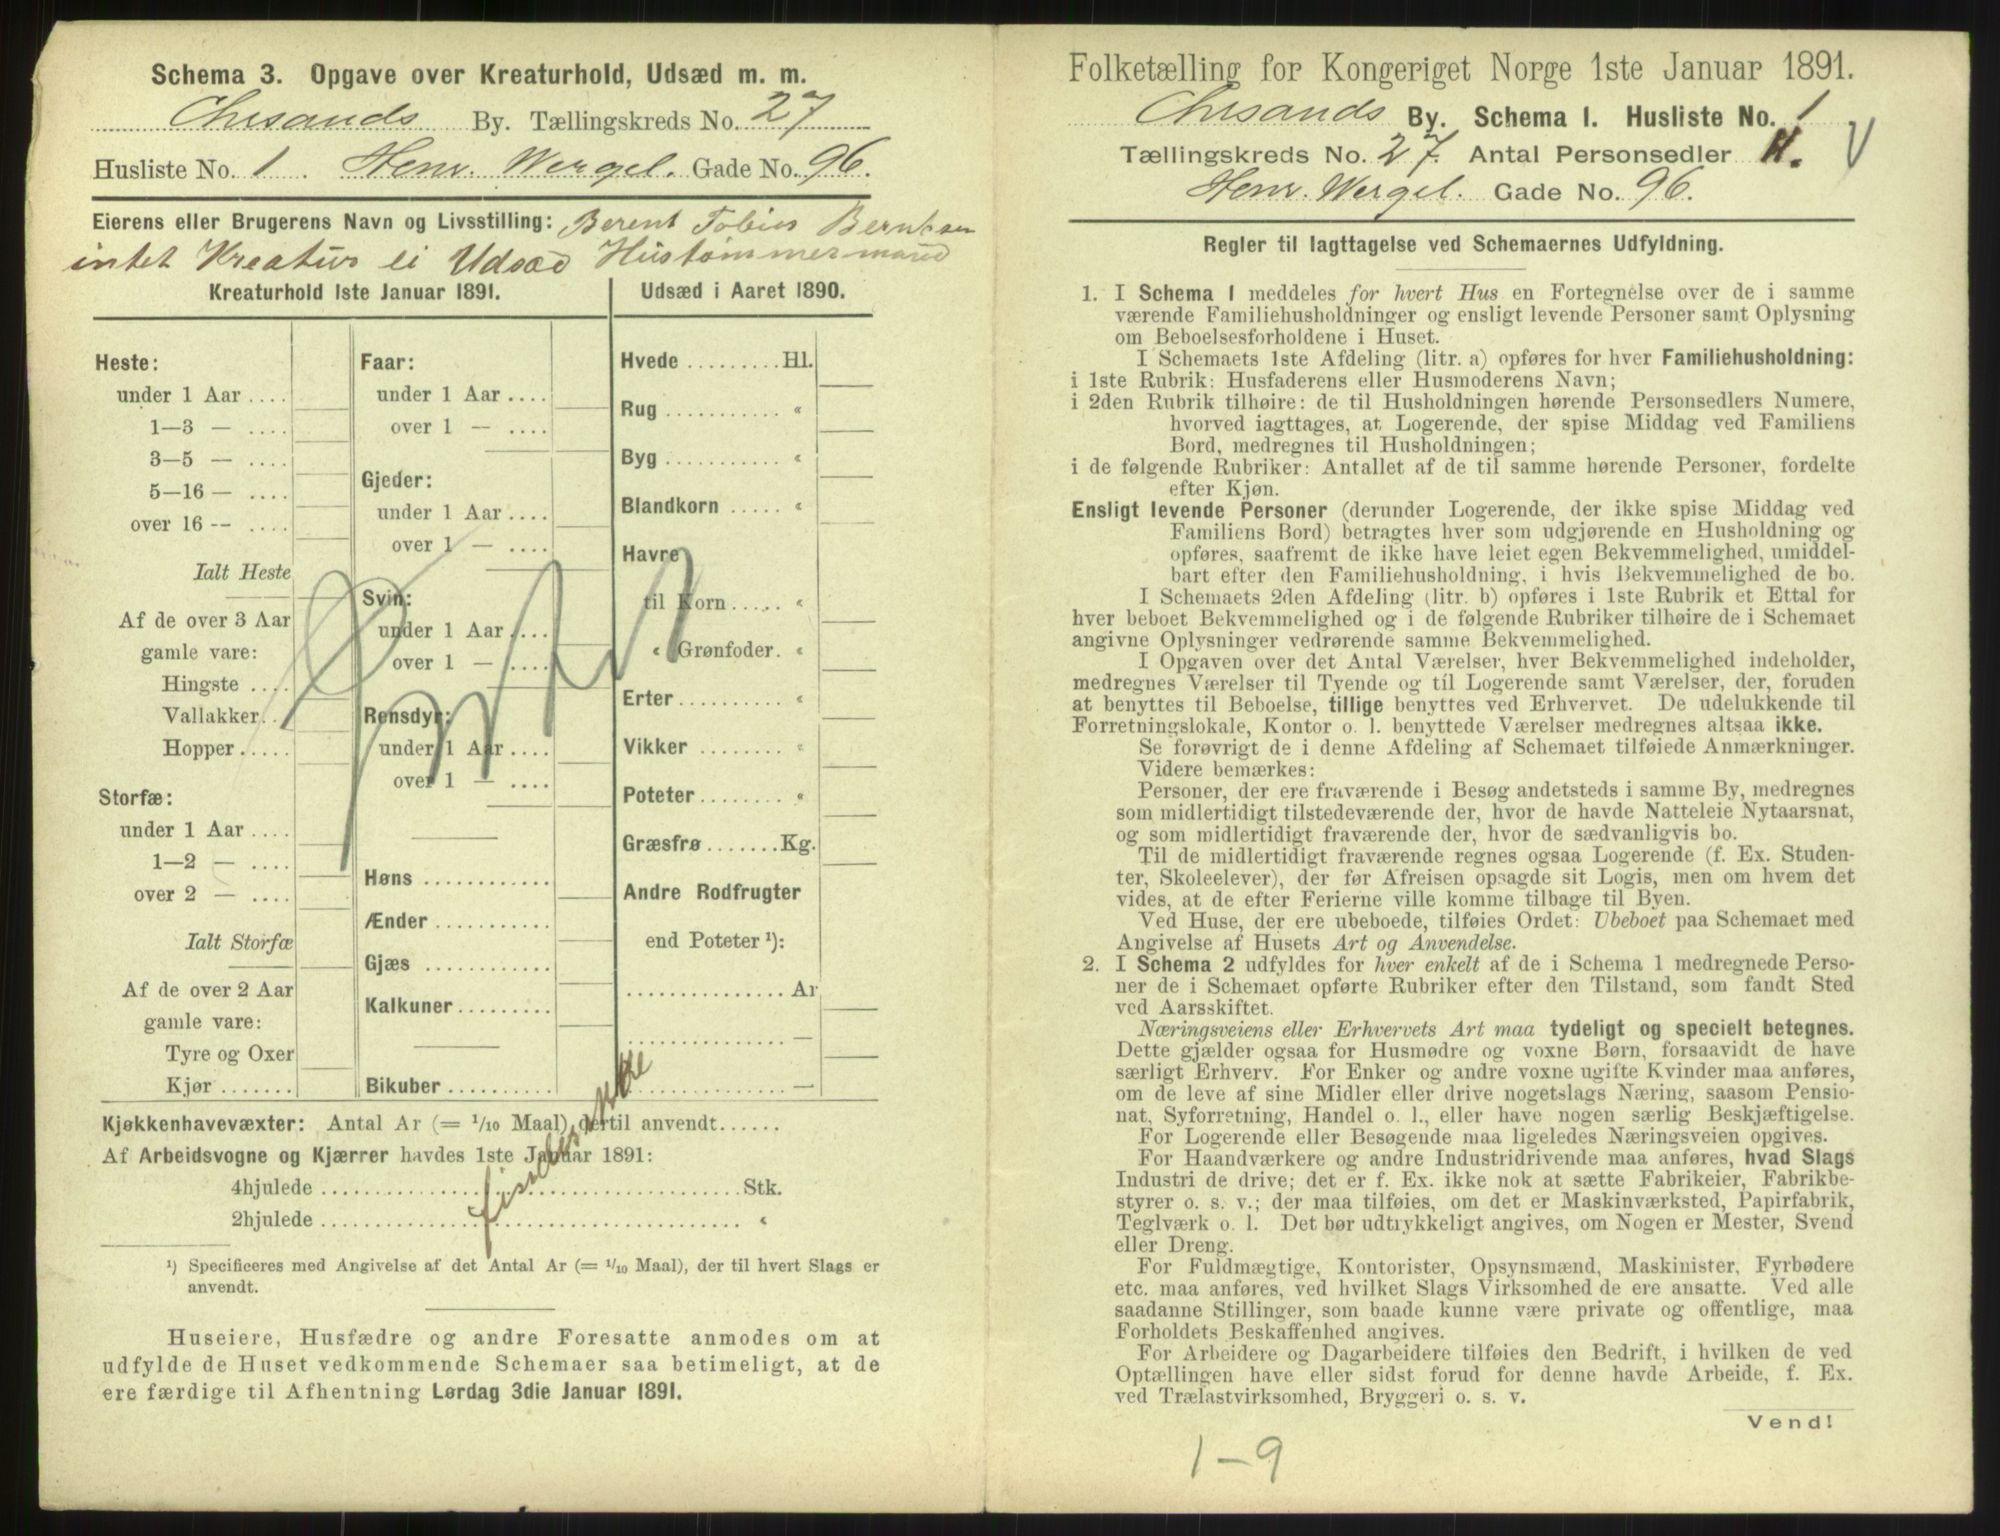 Schema 3. Opgave over Kreaturhold, Udsæd m. m.
Chrsands By. Tællingskreds No. 27
Husliste No. 1. Henr. Wergel. Gade No. 96.
Eierens eller Brugerens Navn og Livsstilling: Berent Tobias Berntsen
intet Kreatur ei Udsæd Hustømmermand
Kreaturhold 1ste Januar 1891.
Heste:
under 1 Aar ....
1—3 — ....
3—5 — ....
5—16 — ....
over 16 -- ....
Ialt Heste
Af de over 3 Aar
gamle vare:
Hingste ....
Vallakker..
Hopper.....
Storfæ:
under 1 Aar ....
1—2 — ....
over 2 — ....
Ialt Storfæ
Af de over 2 Aar
gamle vare:
Tyre og Oxer
Kjør .......
Faar:
under 1 Aar ....
over 1 — ....
Gjeder:
under 1 Aar ....
over 1 — ....
Svin:
under 1 Aar ....
over 1 — ....
Rensdyr:
under 1 Aar ....
over 1 — ....
Høns ............
Ænder ...........
Gjæs ............
Kalkuner .........
Bikuber ..........
Udsæd i Aaret 1890.
Hvede .........Hl.
Rug ........... “
Byg ........... “
Blandkorn ..... “
Havre
til Korn..... “
“ Grønfoder. “
Erter.......... “
Vikker ........ “
Poteter........ “
Græsfrø.......Kg.
Andre Rodfrugter
end Poteter ¹):
...............Ar
............... —
............... —
Kjøkkenhavevæxter: Antal Ar (= 1/10 Maal) dertil anvendt......
Af Arbeidsvogne og Kjærrer havdes 1ste Januar 1891:
4hjulede ........................................Stk.
2hjulede ........................................ “
¹) Specificeres med Angivelse af det Antal Ar (= 1/10 Maal), der til hvert Slags er
anvendt.
Huseiere, Husfædre og andre Foresatte anmodes om at
udfylde de Huset vedkommende Schemaer saa betimeligt, at de
ere færdige til Afhentning Lørdag 3die Januar 1891.
Folketælling for Kongeriget Norge 1ste Januar 1891.
Chrsands By. Schema I. Husliste No. 1
Tællingskreds No. 27. Antal Personsedler
Henr. Wergel. Gade No. 96.
Regler til Iagttagelse ved Schemaernes Udfyldning.
1. I Schema I meddeles for hvert Hus en Fortegnelse over de i samme
værende Familiehusholdninger og ensligt levende Personer samt Oplysning
om Beboelsesforholdene i Huset.
I Schemaets 1ste Afdeling (litr. a) opføres for hver Familiehusholdning:
i 1ste Rubrik: Husfaderens eller Husmoderens Navn;
i 2den Rubrik tilhøire: de til Husholdningen hørende Personsedlers Numere,
hvorved iagttages, at Logerende, der spise Middag ved Familiens
Bord, medregnes til Husholdningen;
i de følgende Rubriker: Antallet af de til samme hørende Personer, fordelte
efter Kjøn.
Ensligt levende Personer (derunder Logerende, der ikke spise Middag ved
Familiens Bord) betragtes hver som udgjørende en Husholdning og
opføres, saafremt de ikke have leiet egen Bekvemmelighed, umiddel-
bart efter den Familiehusholdning, i hvis Bekvemmelighed de bo.
I Schemaets 2den Afdeling (litr. b) opføres i 1ste Rubrik et Ettal for
hver beboet Bekvemmelighed og i de følgende Rubriker tilhøire de i Schemaet
angivne Oplysninger vedrørende samme Bekvemmelighed.
I Opgaven over det Antal Værelser, hver Bekvemmelighed indeholder,
medregnes Værelser til Tyende og til Logerende samt Værelser, der, foruden
at benyttes til Beboelse, tillige benyttes ved Erhvervet. De udelukkende til
Forretningslokale, Kontor o. l. benyttede Værelser medregnes altsaa ikke.
Se forøvrigt de i denne Afdeling af Schemaet tilføiede Anmærkninger.
Videre bemærkes:
Personer, der ere fraværende i Besøg andetsteds i samme By, medregnes
som midlertidigt tilstedeværende der, hvor de havde Natteleie Nytaarsnat,
og som midlertidigt fraværende der, hvor de sædvanligvis bo.
Til de midlertidigt fraværende regnes ogsaa Logerende (f. Ex. Studen-
ter, Skoleelever), der før Afreisen opsagde sit Logis, men om hvem det
vides, at de efter Ferierne ville komme tilbage til Byen.
Ved Huse, der ere ubeboede, tilføies Ordet: Ubeboet paa Schemaet med
Angivelse af Husets Art og Anvendelse.
2. I Schema 2 udfyldes for hver enkelt af de i Schema 1 medregnede Perso-
ner de i Schemaet opførte Rubriker efter den Tilstand, som fandt Sted
ved Aarsskiftet.
Næringsveiens eller Erhvervets Art maa tydeligt og specielt betegnes.
Dette gjælder ogsaa for Husmødre og voxne Børn, forsaavidt de have
særligt Erhverv. For Enker og andre voxne ugifte Kvinder maa anføres,
om de leve af sine Midler eller drive nogetslags Næring, saasom Pensio-
nat, Syforretning, Handel o. l., eller have nogen særlig Beskjæftigelse.
For Logerende eller Besøgende maa ligeledes Næringsveien opgives.
For Haandværkere og andre Industridrivende maa anføres, hvad Slags
Industri de drive; det er f. Ex. ikke nok at sætte Fabrikeier, Fabrikbe-
styrer o. s. v.; der maa tilføies, om det er Maskinværksted, Papirfabrik,
Teglværk o. l. Det bør udtrykkeligt angives, om Nogen er Mester, Svend
eller Dreng.
For Fuldmægtige, Kontorister, Opsynsmænd, Maskinister, Fyrbødere
etc. maa anføres, ved hvilket Slags Virksomhed de ere ansatte. Ved alle
saadanne Stillinger, som baade kunne være private og offentlige, maa
Forholdets Beskaffenhed angives.
For Arbeidere og Dagarbeidere tilføies den Bedrift, i hvilken de ved
Optællingen have eller sidst forud for denne havde Arbeide, f. Ex.
ved Trælastvirksomhed, Bryggeri o. s. v.
Vend!
1-9